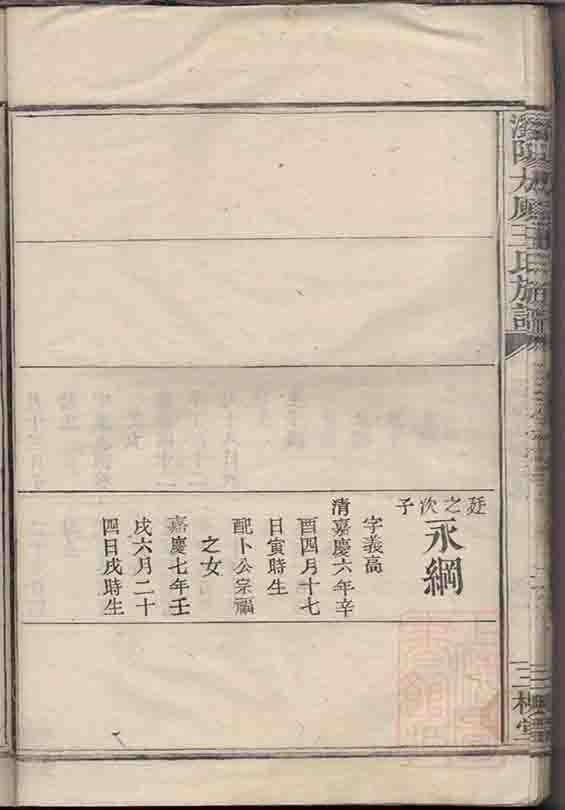 瀏陽大願王氏族譜
三槐堂
廷之次子
永綱
字義高
清嘉慶六年辛
酉四月十七
日寅時生
配卜公宗福
之女
嘉慶七年壬
戌六月二十
四日戌時生